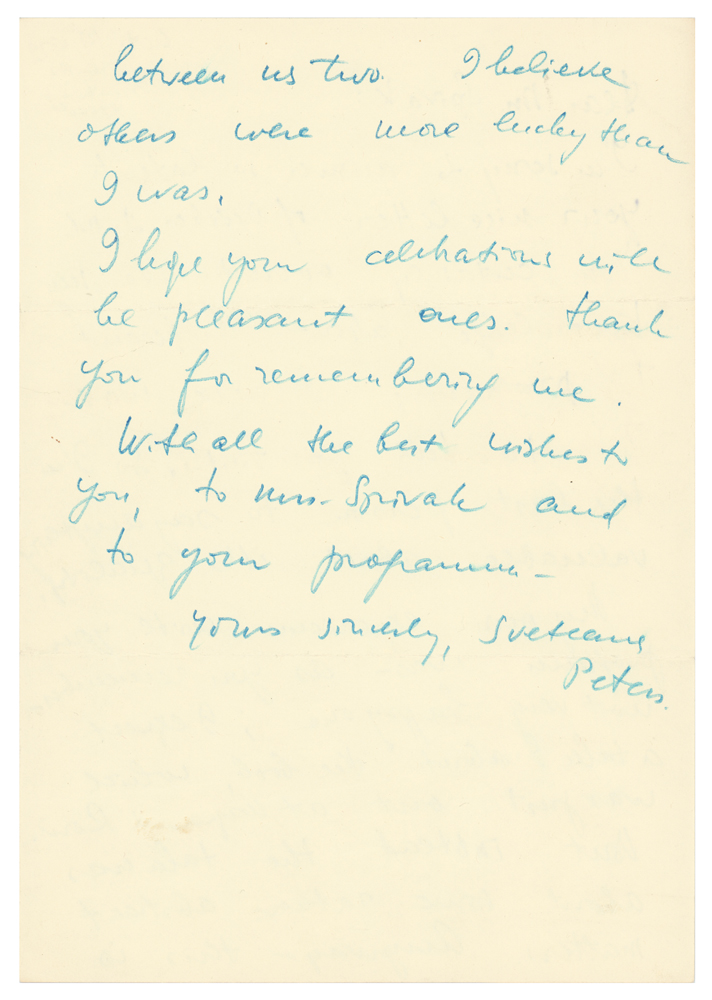 between us two. I believe
others were more lucky than
I was.
I hope your celebrations will
be pleasant ones. Thank
you for remembering me.
With all the best wishes to
you, to mrs. Spivak and
to your programm –
Yours sincerely, Svetlana
Peters.